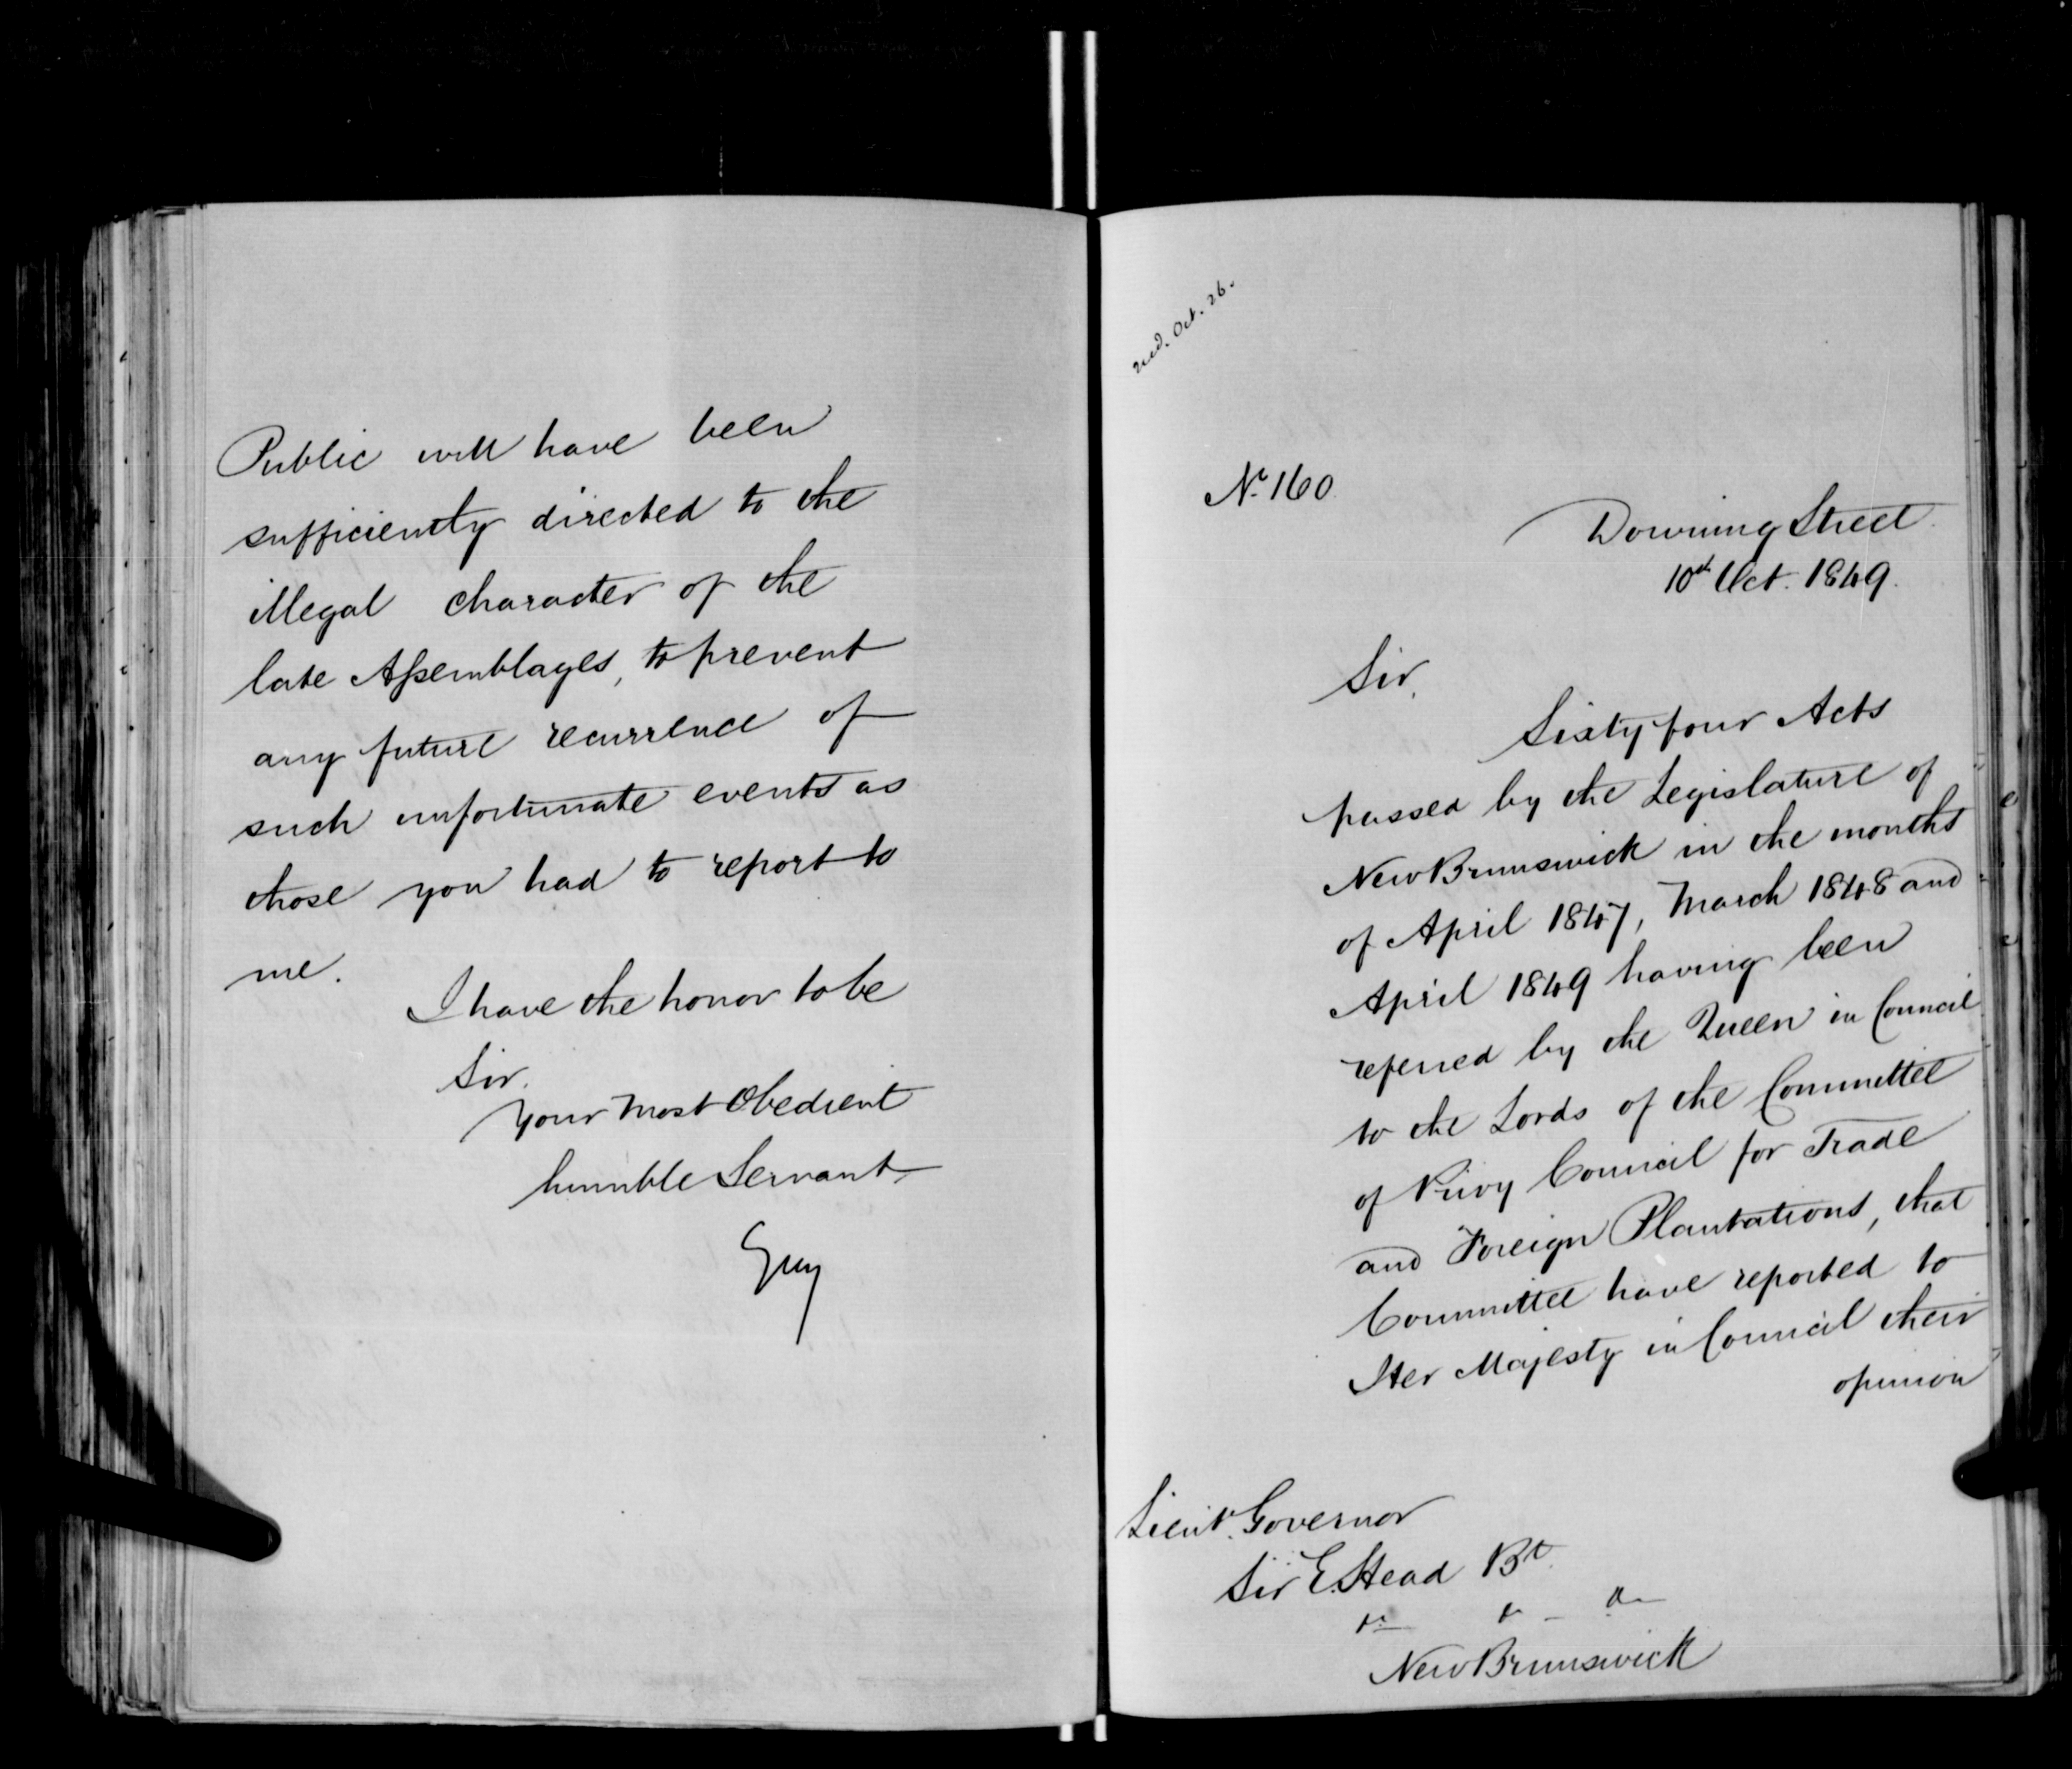 Public will have been
sufficiently directed to the
illegal character of the
late Assemblages, to prevent
any future recurrence of
such unfortunate events as
those you had to report to
me.
I have the honor to be
Sir.
Your Most Obedient
humble Servant
Grey
recd. Oct. 26.
No. 160
Downing Street
10th Oct. 1849.
Sir,
Sixty four Acts
passed by the Legislature of
New Brunswick in the months
of April 1847, March 1848 and
April 1849 having been
referred by the Queen in Council
to the Lords of the Committee
of Privy Council for Trade
and Foreign Plantations, that
Committee have reported to
Her Majesty in Council their
opinion
Lieut. Governor
Sir E. Head Bt.
New Brunswick